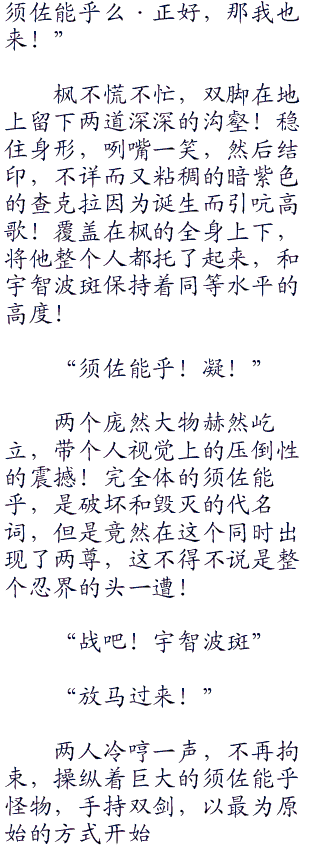 须佐能乎么·正好，那我也
来！”
枫不慌不忙，双脚在地
上留下两道深深的沟壑！稳
住身形，咧嘴一笑，然后结
印，不详而又粘稠的暗紫色
的查克拉因为诞生而引吭高
歌！覆盖在枫的全身上下，
将他整个人都托了起来，和
宇智波斑保持着同等水平的
高度！
“须佐能乎！凝！”
两个庞然大物赫然屹
立，带个人视觉上的压倒性
的震撼！完全体的须佐能
乎，是破坏和毁灭的代名
词，但是竟然在这个同时出
现了两尊，这不得不说是整
个忍界的头一遭！
“战吧！宇智波斑”
“放马过来！”
两人冷哼一声，不再拘
束，操纵着巨大的须佐能乎
怪物，手持双剑，以最为原
始的方式开始